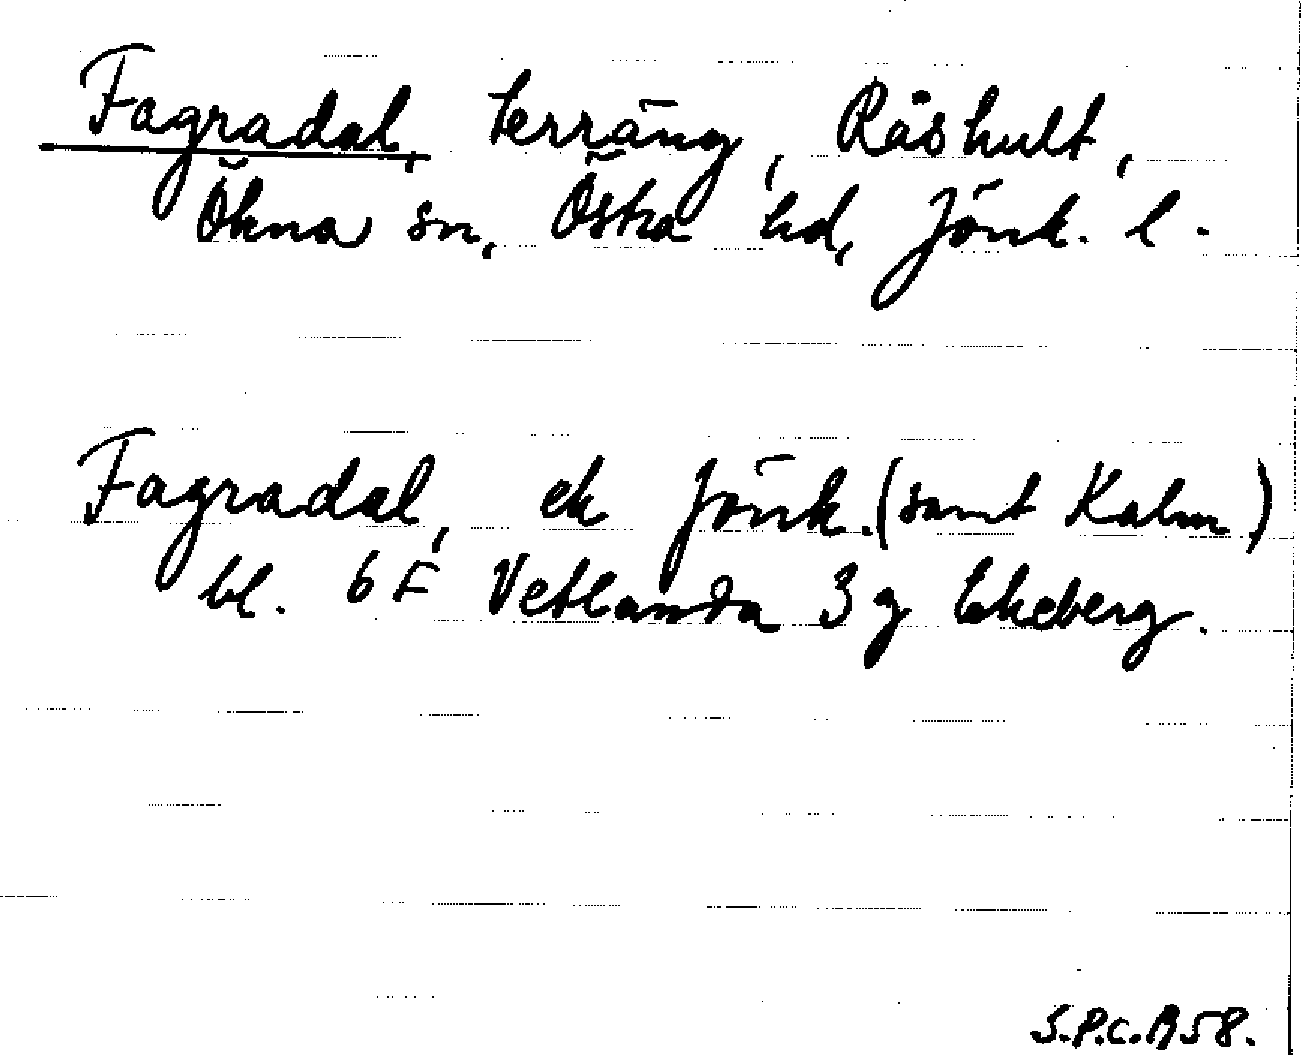 Fagradal, terräng, Råshult,
Ökna sn, Östra hd, Jönk. l.
Fagradal, ek Jönk. (samt Kalm.)
bl. 6F Vetlanda 3g Ekeberg.
S.P.C.B58.